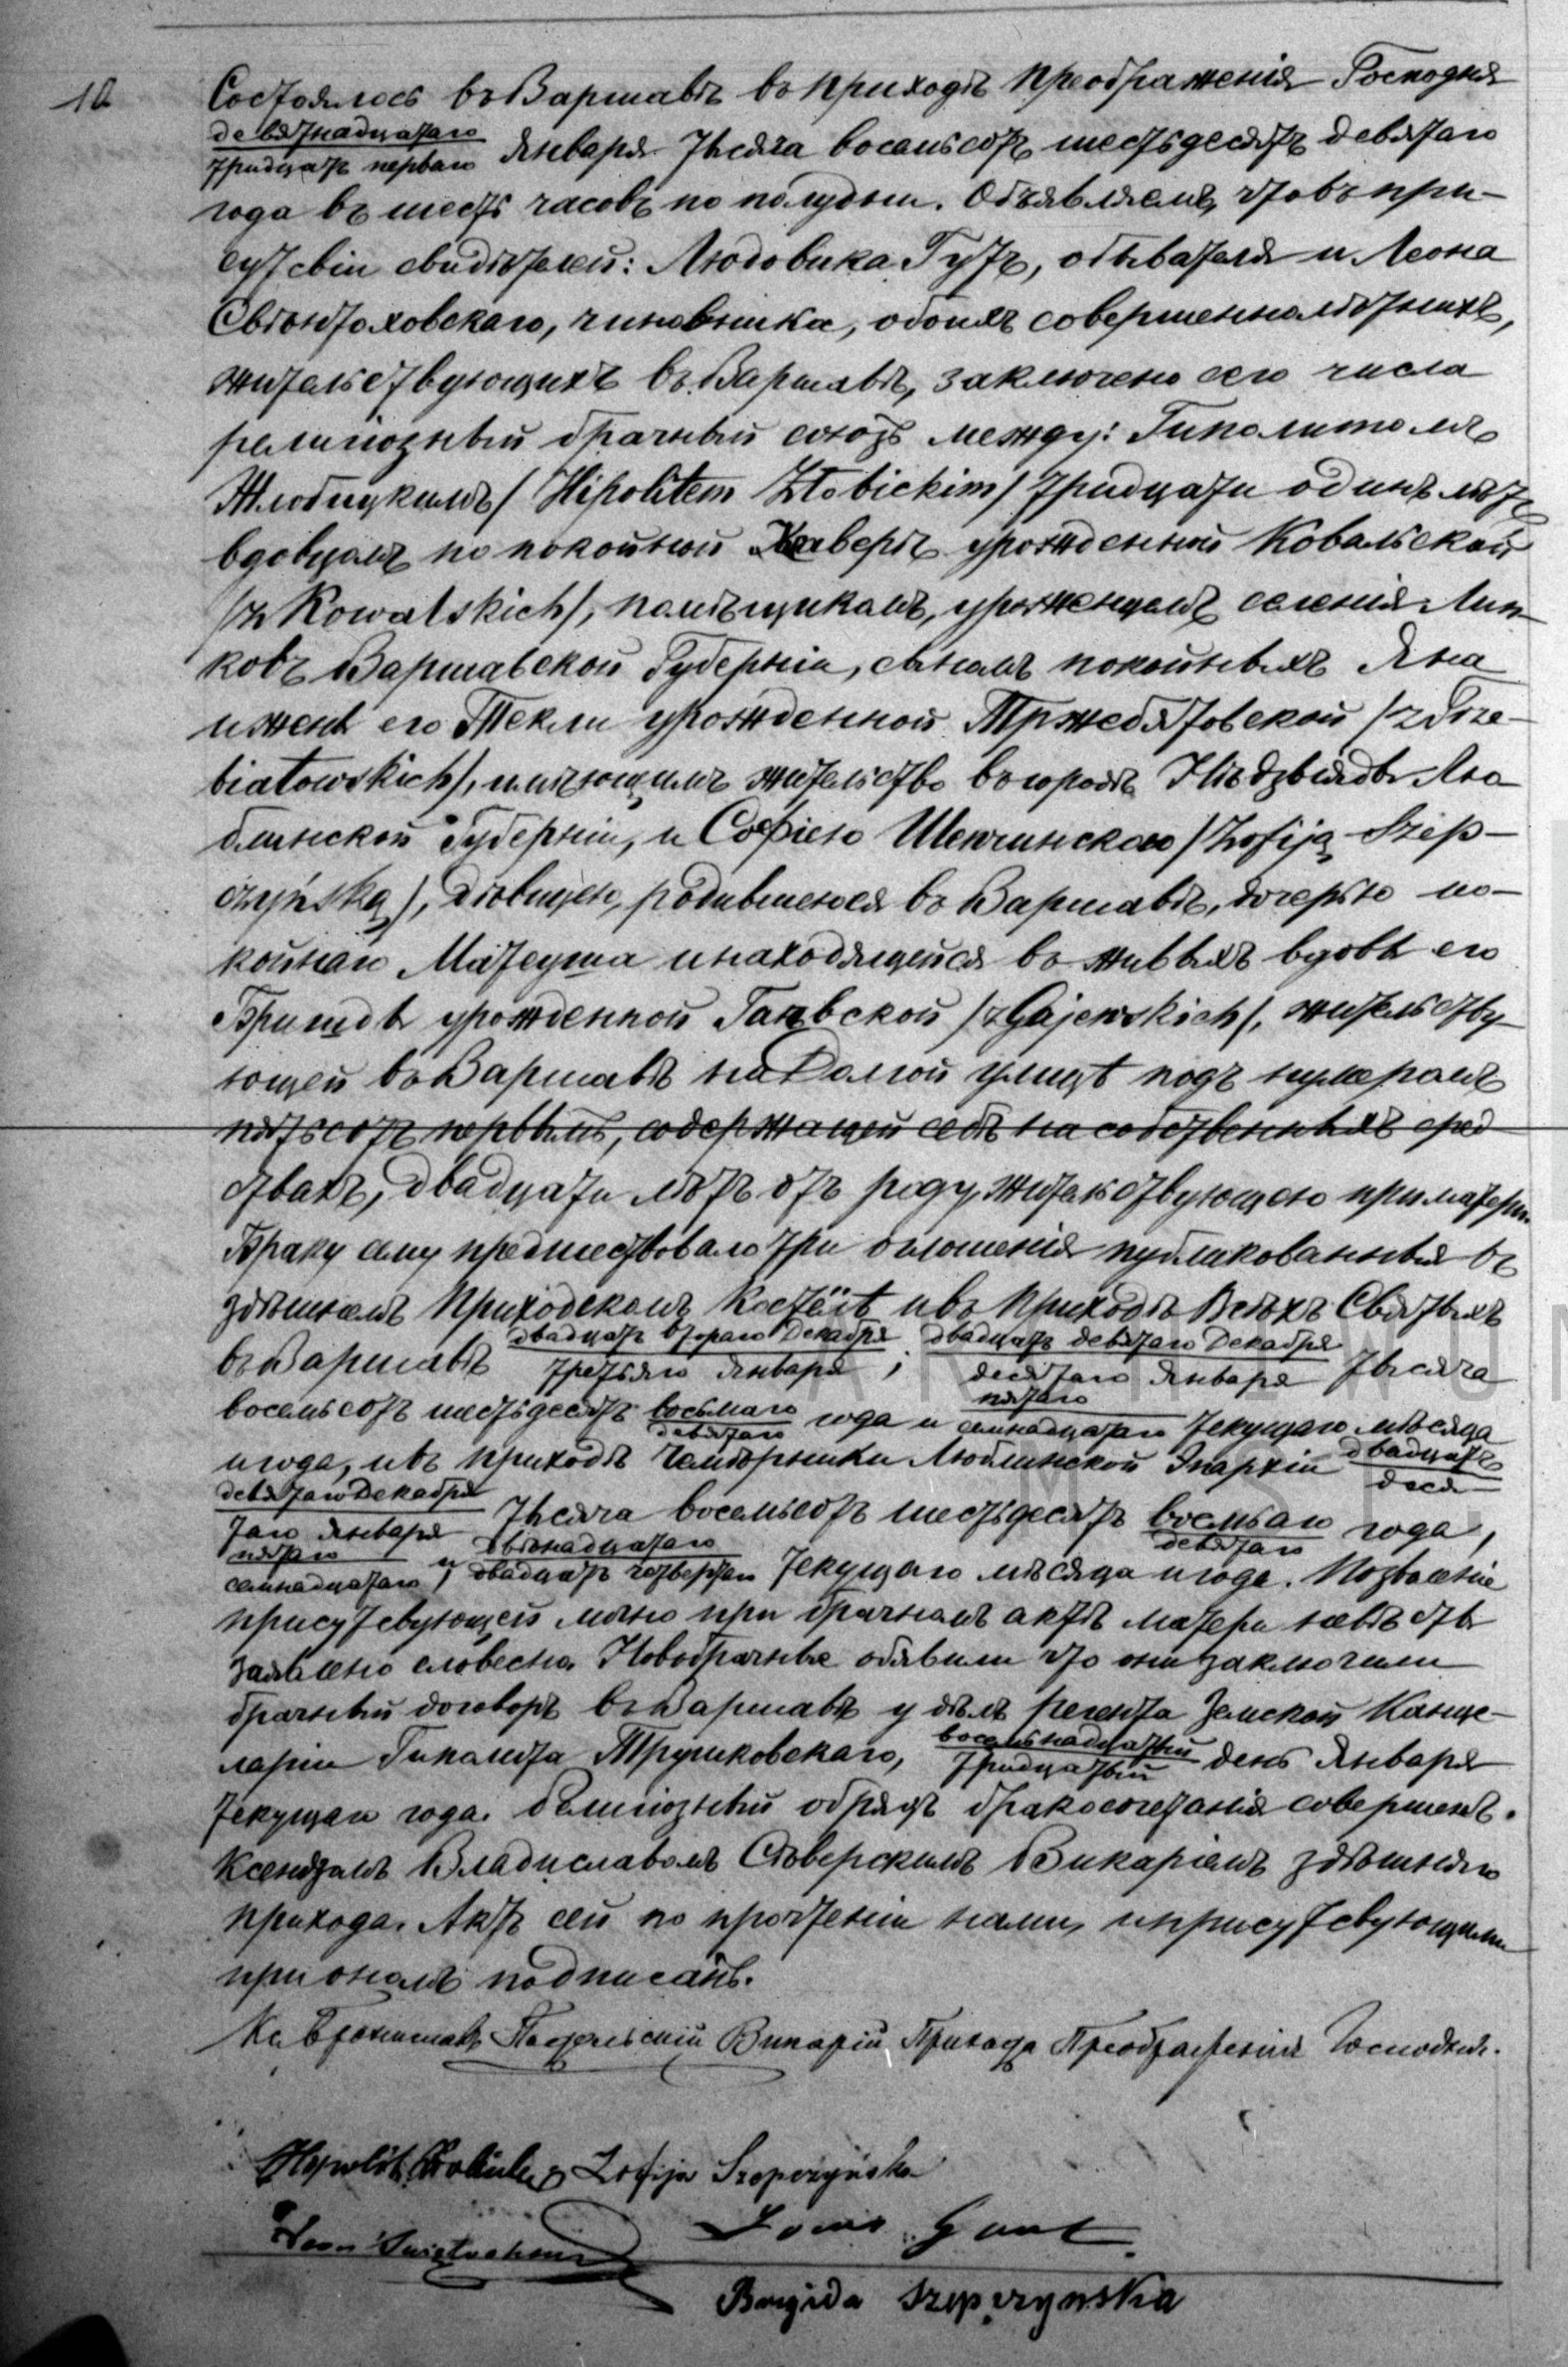 10
Состоялось въ Варшавѣ въ приходѣ Преображенія Господня
девятнадцатаго
тридцать перваго Января тысяча восемьсотъ шестьдесятъ девятаго
года въ шесть часовъ по полудни. Объявляемъ, что въ при-
сутсвіи свидѣтелей: Людовика Гутъ, обывателя и Леона
Свѣнтоховскаго, чиновника, обоихъ совершеннолѣтнихъ,
жительствующихъ въ Варшавѣ, заключено сего числа
религіозный брачный союзъ между: Гиполитомъ
Жлобицкимъ /Hipolitem Żłobickim/ тридцати одинъ лѣтъ
вдовцомъ по покойной Ксаверѣ урожденной Ковальской
/z Kowalskich/, помѣщикомъ, урожденцомъ селенія Лип
ковъ Варшавской Губерніи, сыномъ покойныхъ Яна
и жены его Текли урожденной Тржебятовской /z Trze-
biatowskich/, имѣющимъ жительство въ городѣ Нѣдзвядѣ Лю
блинской Губерніи, и Софіею Шепчинскою /Zofiją Szep-
czyńską/, дѣвицею, родившеюся въ Варшавѣ, дочерью по-
койнаго Матеуша и находящейся въ живыхъ вдовы его
Бригиды урожденной Гаевской /z Gajewskich/, жительству
ющей въ Варшавѣ на Долгой улицѣ подъ нумеромъ
пятьсотъ первымъ, содержащей себѣ на собственныхъ сред
ствахъ, двадцати лѣтъ отъ роду, жительствующею при матери.
Браку сему предшествовало три оглошенія публикованныя въ
здѣшнемъ Приходскомъ Костёлѣ и въ Приходѣ Всѣхъ Святыхъ
въ Варшавѣ двадцать втораго Декабря / третьяго Января, двадцать девятаго Декабря / десятаго Января тысяча
восемьсотъ шестьдесятъ восьмаго / девятаго года и пятаго / семнадцатаго текущаго мѣсяца
и года, и въ приходѣ Чемѣрники Люблинской Эпархіи двадцать
девятаго Декабря / деся
таго Января тысяча восемьсотъ шестьдесятъ восьмаго / девятаго года,
пятаго / семнадцатаго и двѣнадцатаго / двадцать четвертаго текущаго мѣсяца и года. Позволеніе
присутсвующей лично при брачномъ актѣ матери невѣсты
заявлено словесно. Новобрачные объявили что они заключили
брачный договоръ въ Варшавѣ у дѣлъ регента Земской Канце-
ляріи Гиполита Трушковскаго, восемьнадцатый / тридцатый день Января
текущаго года. Религіозный обрядъ бракосочетанія совершенъ
Ксендзомъ Владиславомъ Сѣверскимъ Викаріемъ здѣшняго
прихода. Актъ сей по прочтеніи нами, и присутсвующими
при ономъ подписанъ.
Кс. Брониславъ Викарій Прихода Преображенія Господня.
Hipolit Żłobicki Zofija Szepczyńska
Leon Świętochowski Louis Gout
Brygida Szepczynska